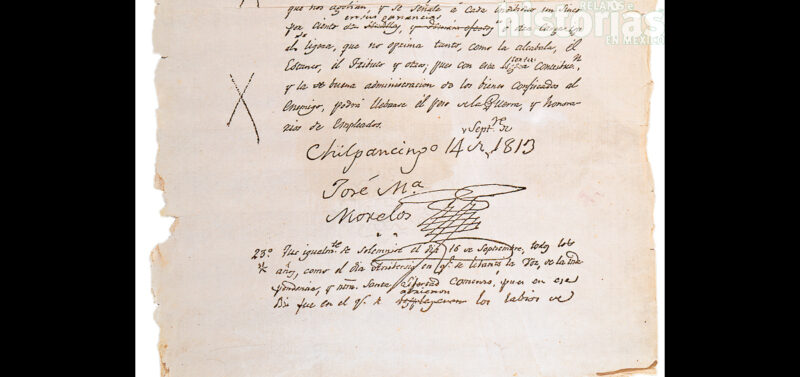 que nos agobian, y se señale á cada individuo un cinco
por ciento en sus ganancias
el ligera, que no oprima tanto, como la alcabala, el
Estanco, el Tributo y otros, pues con esta ligera contribucn
y la buena administracion de los bienes confiscados al
Enemigo, podrá llebarse el peso de la Guerra, y honora-
rios de Empleados.
Chilpancingo 14 de Septre de 1813
José Ma
Morelos
23º Que igualmte se solemnise el dia 16 de Septiembre, todos los
años, como el dia Anibersario en q. se lebantó la Voz, de la Inde
pendencia, y ntra. Santa Libertad Comenzó, pues en ese
Dia fue en el q. se desplegaron los labios de
RELATOS e
historias
EN MÉXICO